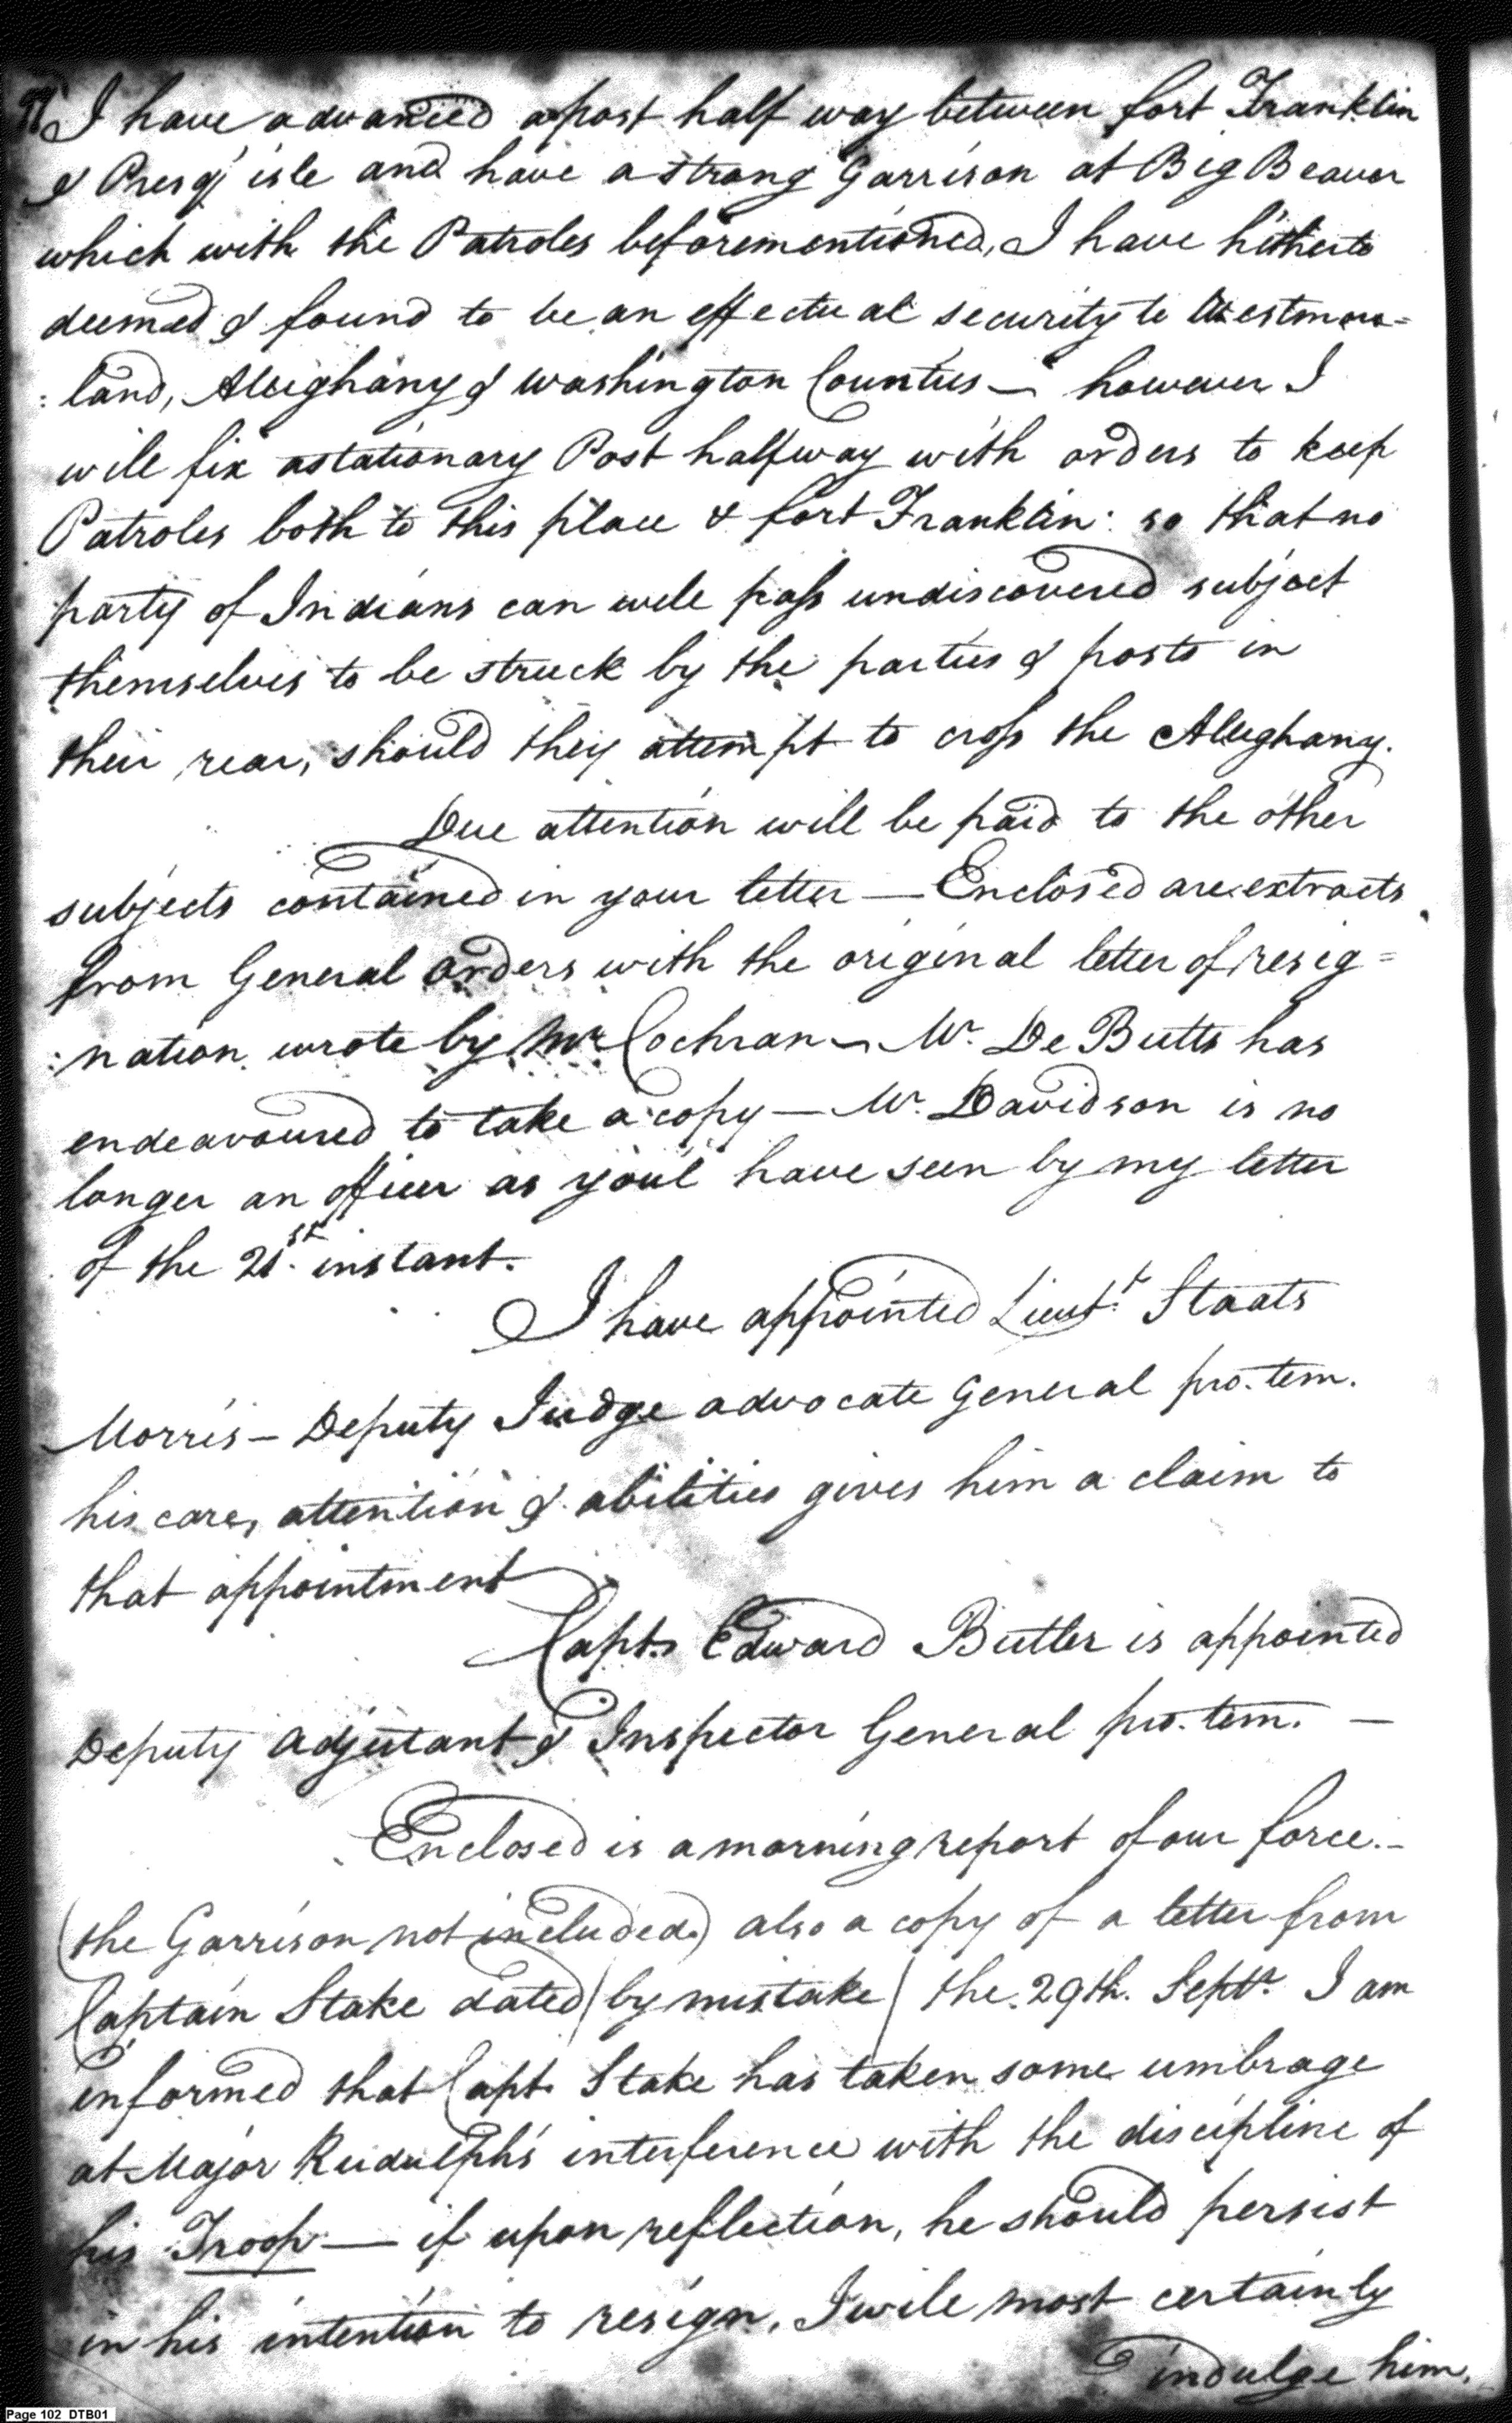 97 I have advanced a post half way between fort Franklin
& Presq' isle and have a strong Garrison at Big Beaver
which with the Patroles beforementioned, I have hitherto
deemed & found to be an effectual security to Westmore=
:land, Alleighany & Washington Counties — however I
will fix a stationary Post halfway with orders to keep
Patroles both to this place & fort Franklin: so that no
party of Indians can well pass undiscovered subject
themselves to be struck by the parties & posts in
their rear, should they attempt to cross the Alleghany.
Due attention will be paid to the other
subjects contained in your letter — Enclosed are extracts
from General Orders with the original letter of resig=
:nation wrote by Mr Cochran — Mr. De Butts has
endeavoured to take a copy — Mr. Davidson is no
longer an officer as you'l have seen by my letter
of the 21st. instant.
I have appointed Lieut.t Staats
Morris — Deputy Judge advocate General pro. tem.
his care, attention & abilities gives him a claim to
that appointment
Capt. Edward Butler is appointed
Deputy Adjutant & Inspector General pro. tem. —
Enclosed is a morning report of our force. —
(the Garrison not included) also a copy of a letter from
Captain Stake dated (by mistake) the 29th. Sept. I am
informed that Capt. Stake has taken some umbrage
at Major Rudulph's interference with the discipline of
his Troop — if upon reflection, he should persist
in his intention to resign, I will most certainly
indulge him.
Page 102 DTB01